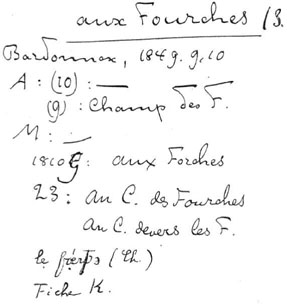 aux Fourches / 3.
Bardonnex, 1849. 9, 10
A : (10) : —
(9) : Champ des F.
M : —
1810 G : aux Forches
23 : au C. des Fourches
au C. devers les F.
le (Ch.)
Fiche K.